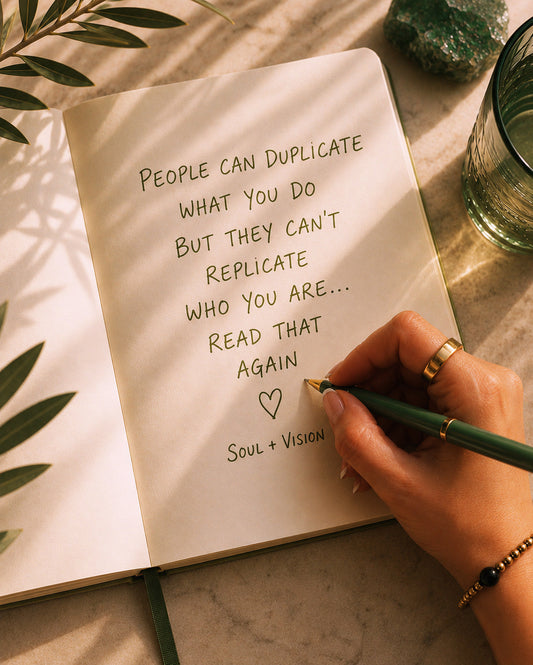 PEOPLE CAN DUPLICATE
WHAT YOU DO
BUT THEY CAN'T
REPLICATE
WHO YOU ARE...
READ THAT
AGAIN
SOUL + VISION